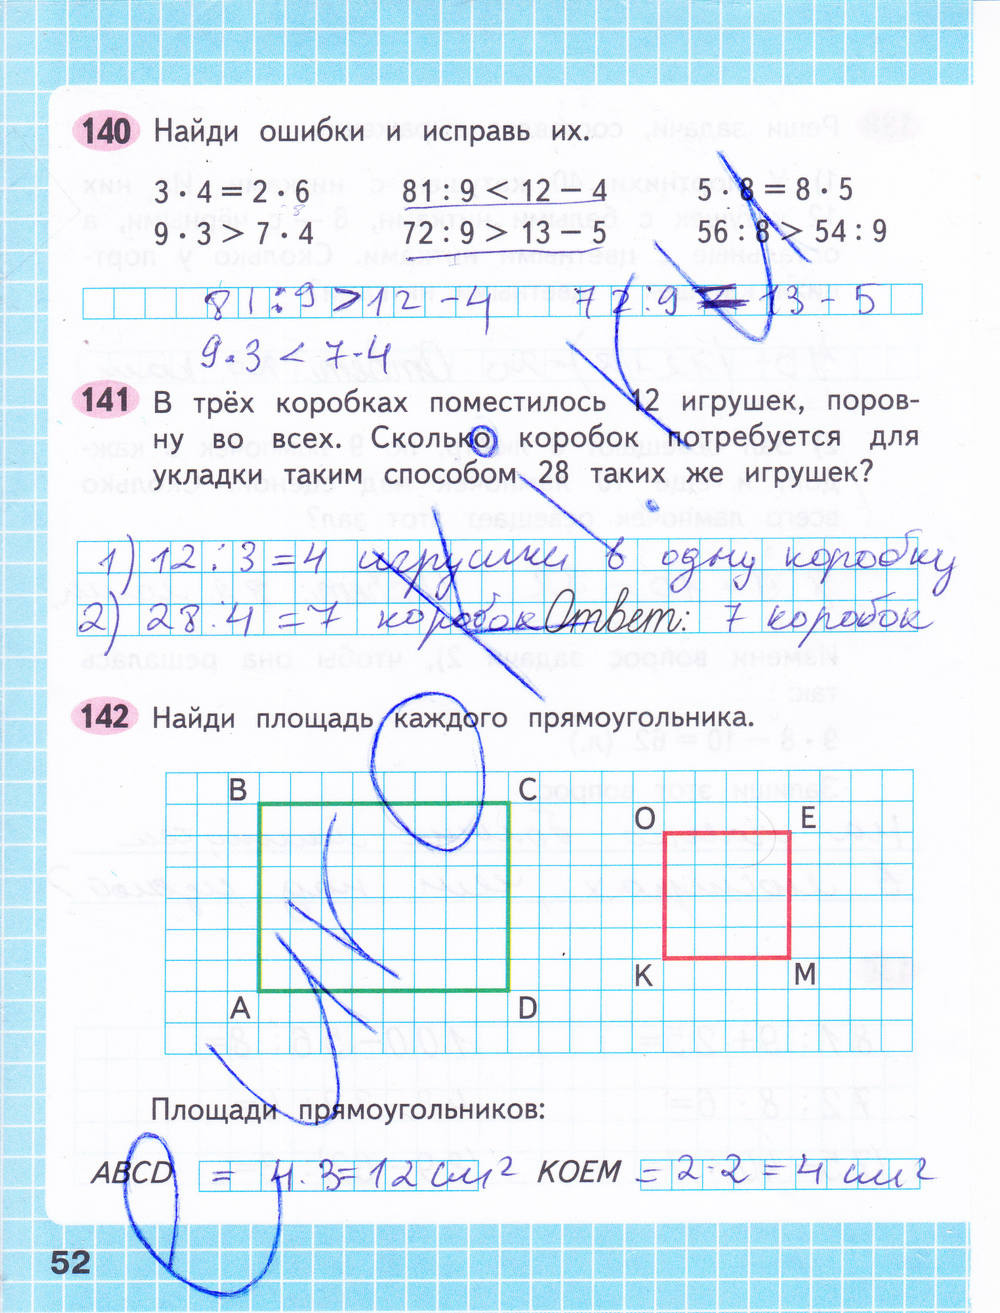 140 Найди ошибки и исправь их.
3 · 4 = 2 · 6 81 : 9 < 12 − 4 5 · 8 = 8 · 5
9 · 3 > 7 · 4 72 : 9 > 13 − 5 56 : 8 > 54 : 9
81 : 9 > 12 − 4 72 : 9 = 13 − 5
9 · 3 < 7 · 4
141 В трёх коробках поместилось 12 игрушек, поров-
ну во всех. Сколько коробок потребуется для
укладки таким способом 28 таких же игрушек?
1) 12 : 3 = 4 игрушки в одну коробку
2) 28 : 4 = 7 коробок Ответ: 7 коробок
142 Найди площадь каждого прямоугольника.
B C
O E
K M
A D
Площади прямоугольников:
ABCD = 4·3=12 см² KOEM = 2·2=4 см²
52